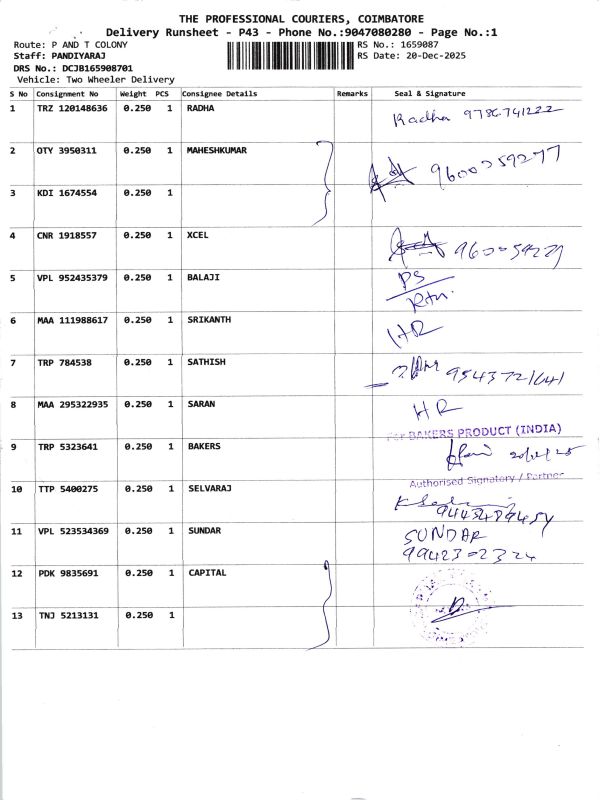 THE PROFESSIONAL COURIERS, COIMBATORE
Delivery Runsheet - P43 - Phone No.:9047080280 - Page No.:1
Route: P AND T COLONY RS No.: 1659087
Staff: PANDIYARAJ RS Date: 20-Dec-2025
DRS No.: DCJB165908701
Vehicle: Two Wheeler Delivery
S No Consignment No Weight PCS Consignee Details Remarks Seal & Signature
1 TRZ 120148636 0.250 1 RADHA Radha 9786741222
2 OTY 3950311 0.250 1 MAHESHKUMAR
3 KDI 1674554 0.250 1
4 CNR 1918557 0.250 1 XCEL
5 VPL 952435379 0.250 1 BALAJI PS
Rtn.
6 MAA 111988617 0.250 1 SRIKANTH HR
7 TRP 784538 0.250 1 SATHISH 9543721641
8 MAA 295322935 0.250 1 SARAN HR
For BAKERS PRODUCT (INDIA)
9 TRP 5323641 0.250 1 BAKERS
Authorised Signatory / Partner
10 TTP 5400275 0.250 1 SELVARAJ
11 VPL 523534369 0.250 1 SUNDAR SUNDAR
9942302324
12 PDK 9835691 0.250 1 CAPITAL
13 TNJ 5213131 0.250 1